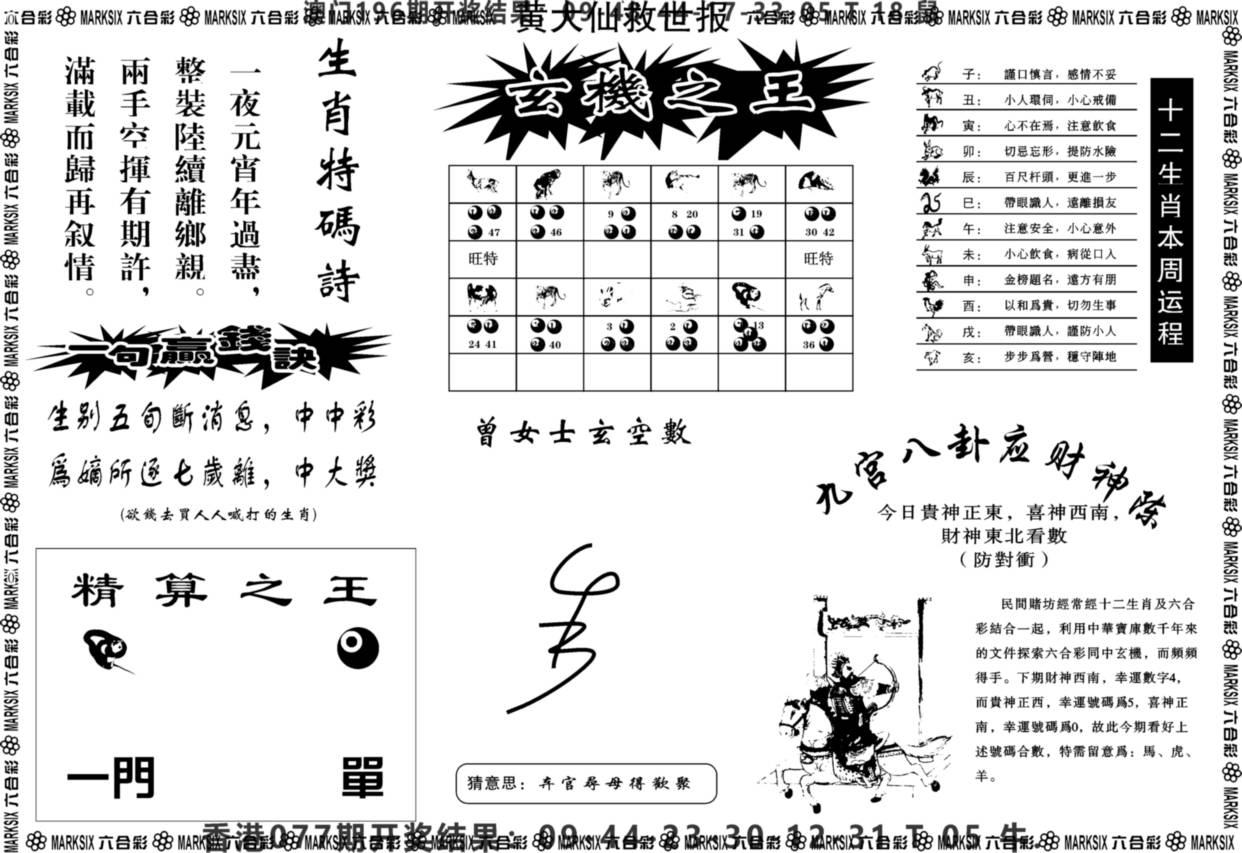 黄大仙救世报
MARKSIX 六合彩
生肖特碼詩
一夜元宵年過盡，
整裝陸續離鄉親。
兩手空揮有期許，
滿載而歸再叙情。
一句贏錢訣
生别五旬斷消息，中中彩
爲嫡所逐七歲離，中大獎
(欲錢去買人人喊打的生肖)
精算之王
一門
單
玄機之王
47
46
9
8 20
19
31
30 42
旺特
旺特
24 41
40
3
2
13
36
曾女士玄空數
猜意思：弃官尋母得歡聚
十二生肖本周运程
子： 謹口慎言，感情不妥
丑： 小人環伺，小心戒備
寅： 心不在焉，注意飲食
卯： 切忌忘形，提防水險
辰： 百尺杆頭，更進一步
巳： 帶眼識人，遠離損友
午： 注意安全，小心意外
未： 小心飲食，病從口入
申： 金榜題名，遠方有朋
酉： 以和爲貴，切勿生事
戌： 帶眼識人，謹防小人
亥： 步步爲營，穩守陣地
九宮八卦应财神
今日貴神正東，喜神西南，
財神東北看數
（防對衝）
民間賭坊經常經十二生肖及六合
彩結合一起，利用中華寶庫數千年來
的文件探索六合彩同中玄機，而頻頻
得手。下期財神西南，幸運數字4，
而貴神正西，幸運號碼爲5，喜神正
南，幸運號碼爲0，故此今期看好上
述號碼合數，特需留意爲：馬、虎、
羊。
香港077期开奖结果：09 44 23 30 12 31 T 05 牛